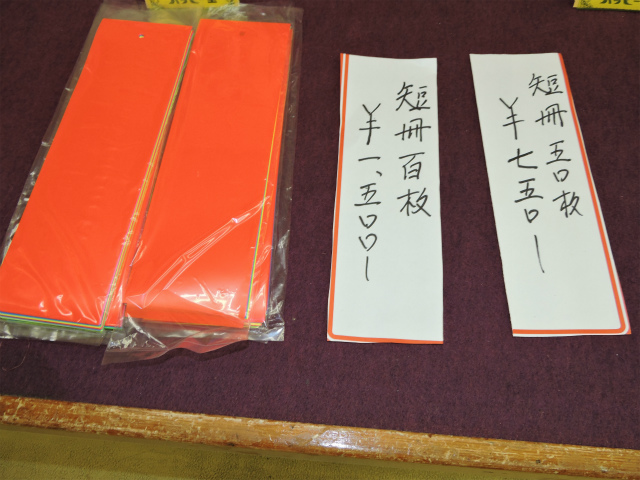 短冊五〇枚
¥七五〇ー
短冊百枚
¥一、五〇〇ー